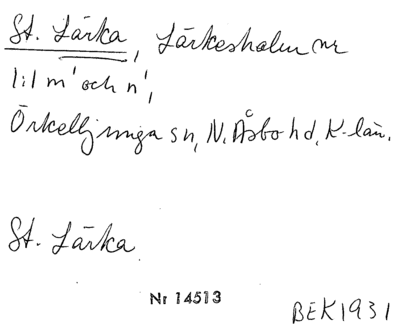 St. Lärka, Lärkesholm nr
1:1 m' och n',
Örkelljunga sn, N. Åsbo hd, K-län.
St. Lärka
Nr 14513
BEK1931